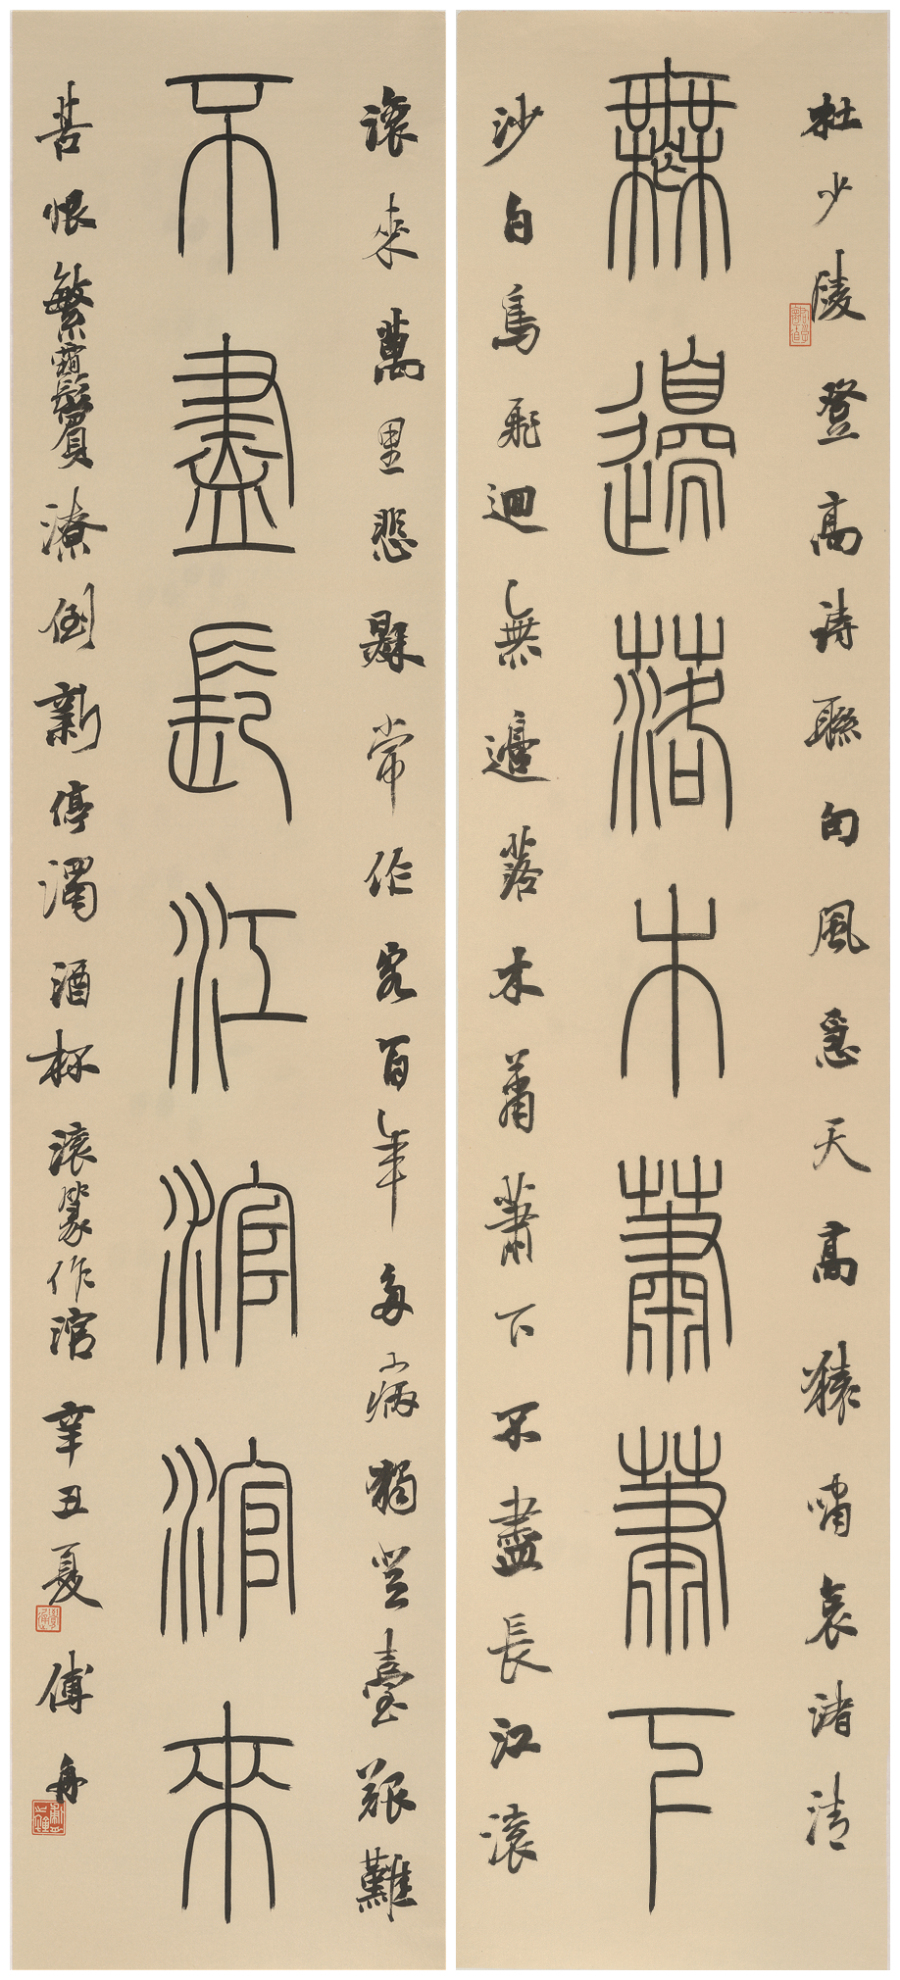 杜少陵登高詩聯句風急天高猿嘯哀渚清
無邊落木蕭蕭下
沙白鳥飛迴無邊落木蕭蕭下不盡長江滾
滾來萬里悲秋常作客百年多病獨登臺艱難
不盡長江涫涫來
苦恨繁霜鬢潦倒新停濁酒杯滾篆作涫辛丑夏傅舟